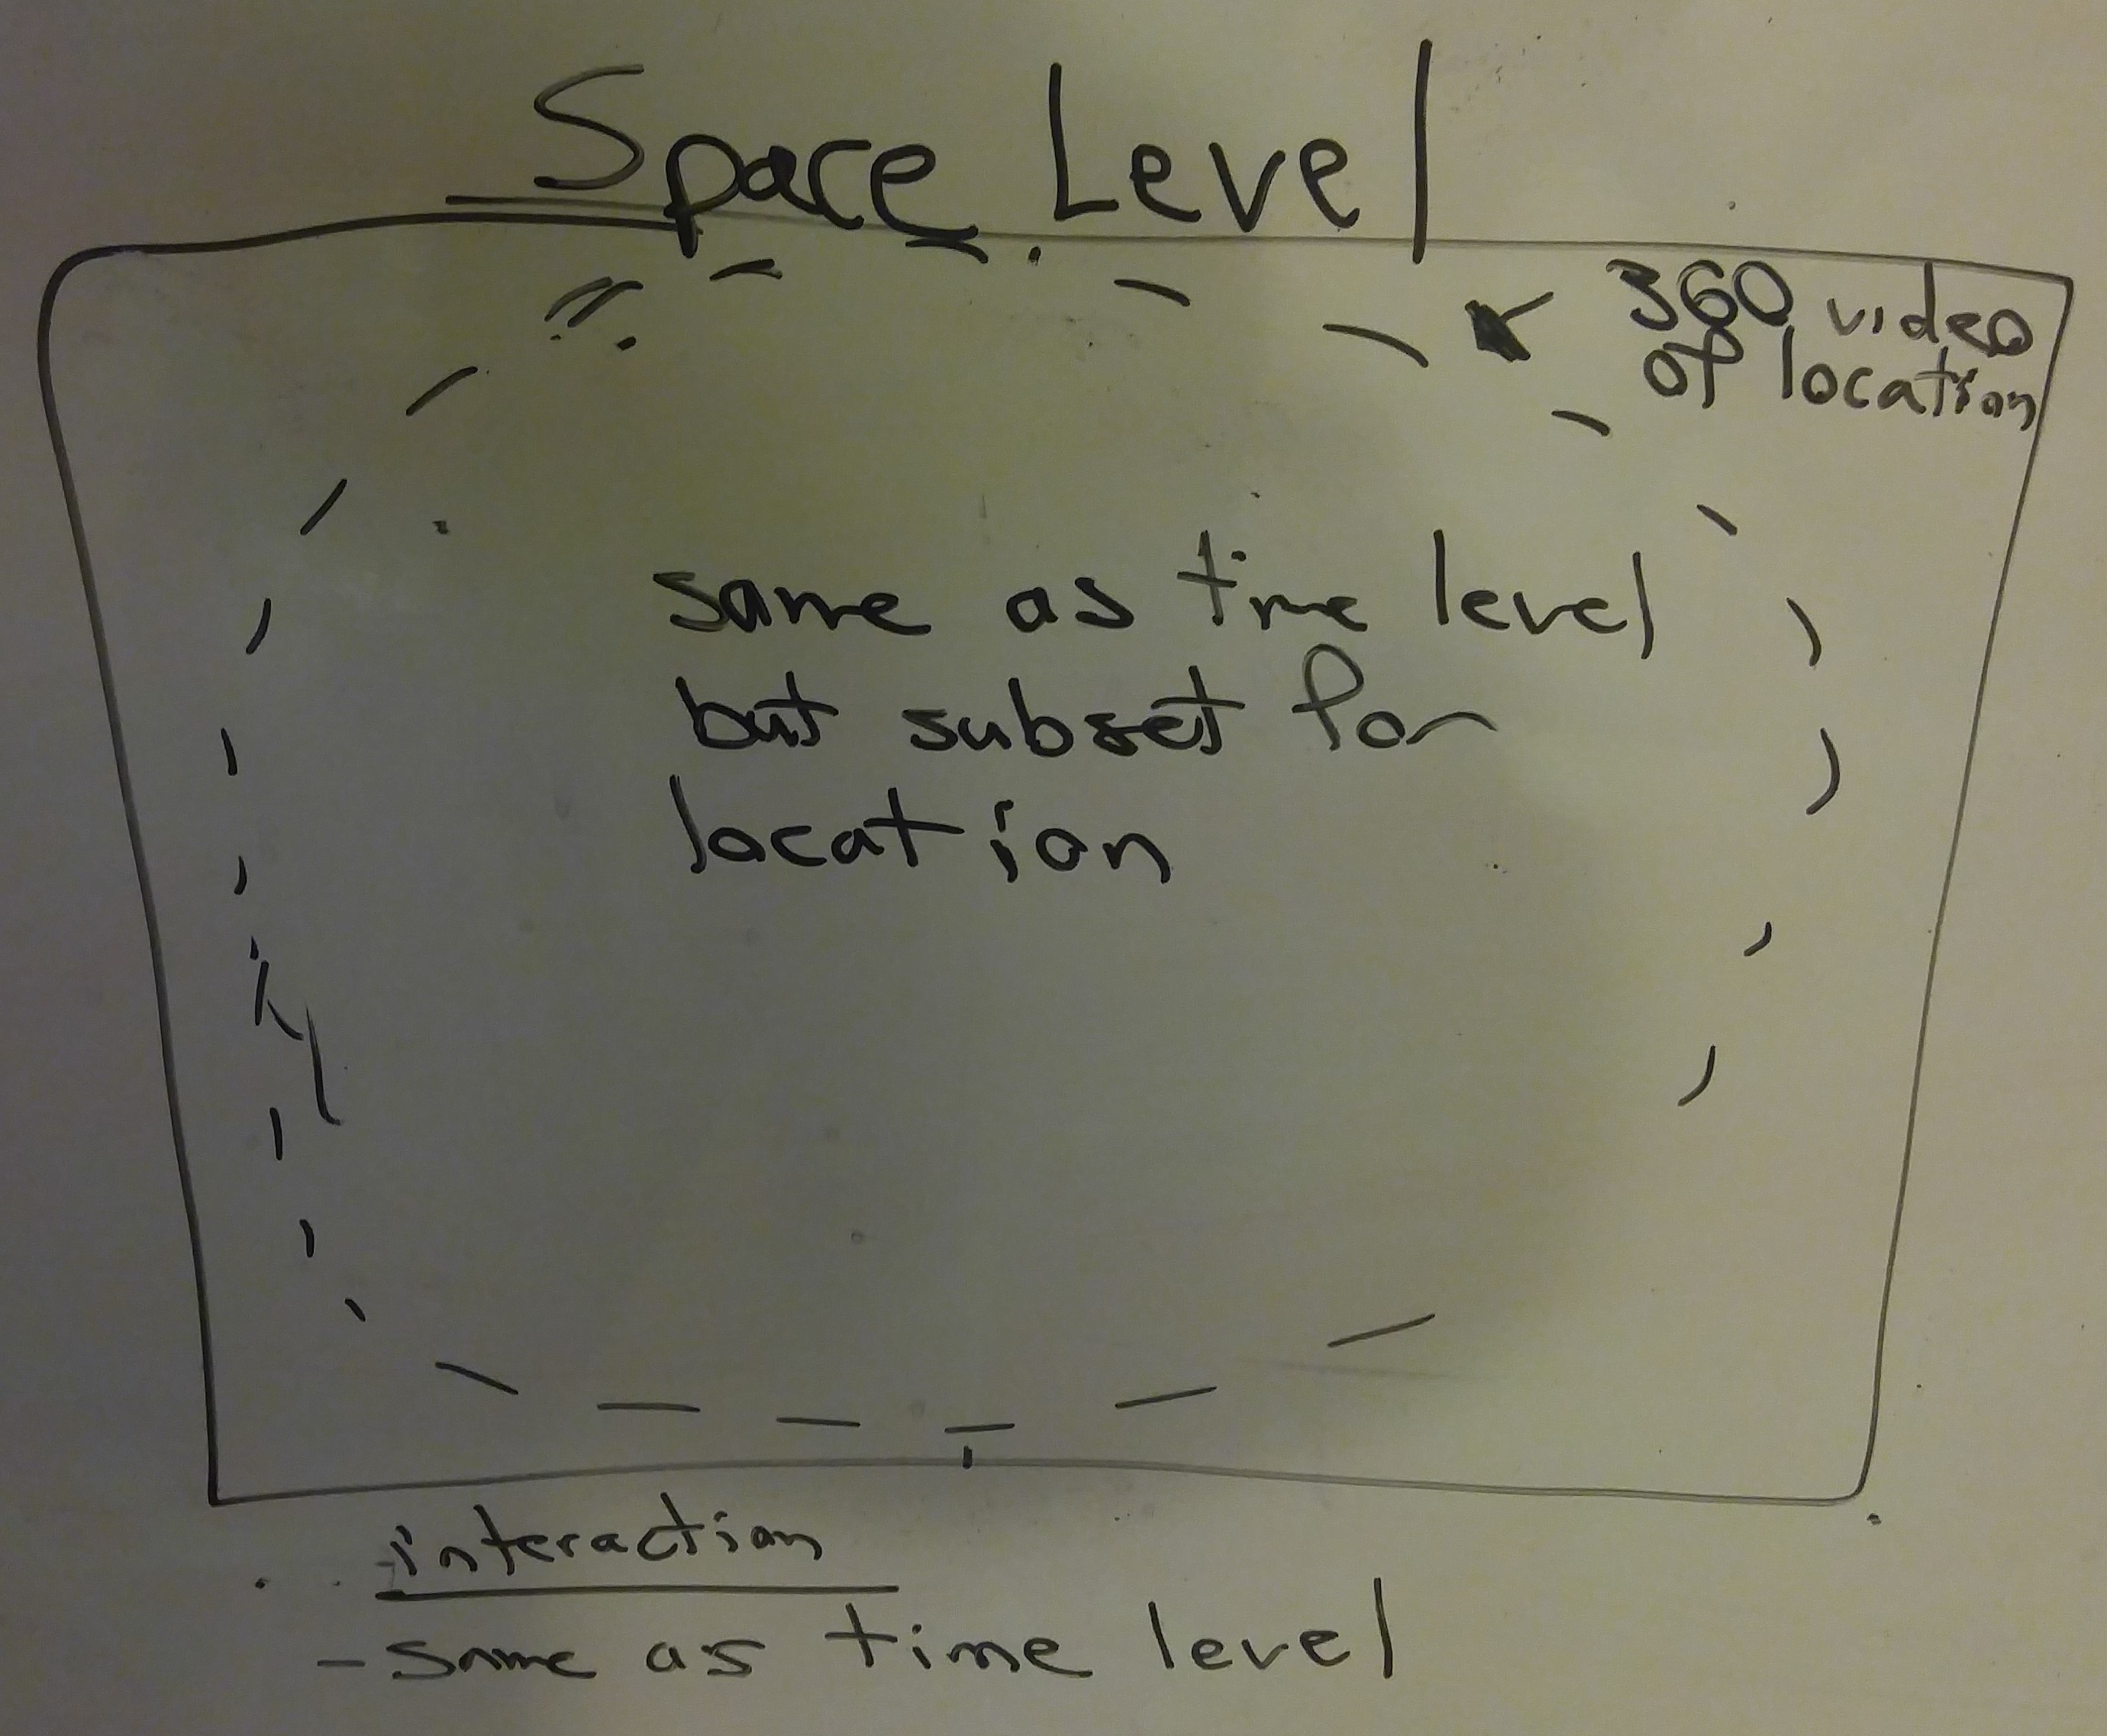 Space Level
360 video
of location
same as time level
but subset for
location
interaction
- same as time level